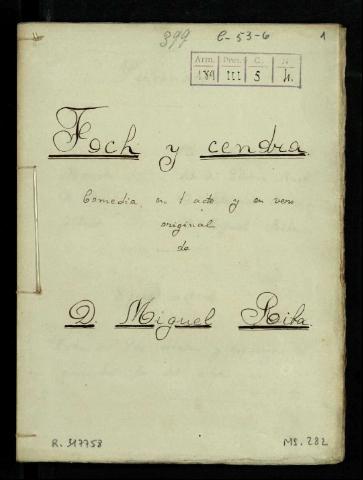 399 C-53-6 1
Arm. Pres. C. N.
189 III 5 4.
Foch y cendra.
Comedia, en 1 acto y en vers
original
de
D. Miguel Riba.
R. 317758
MS. 282